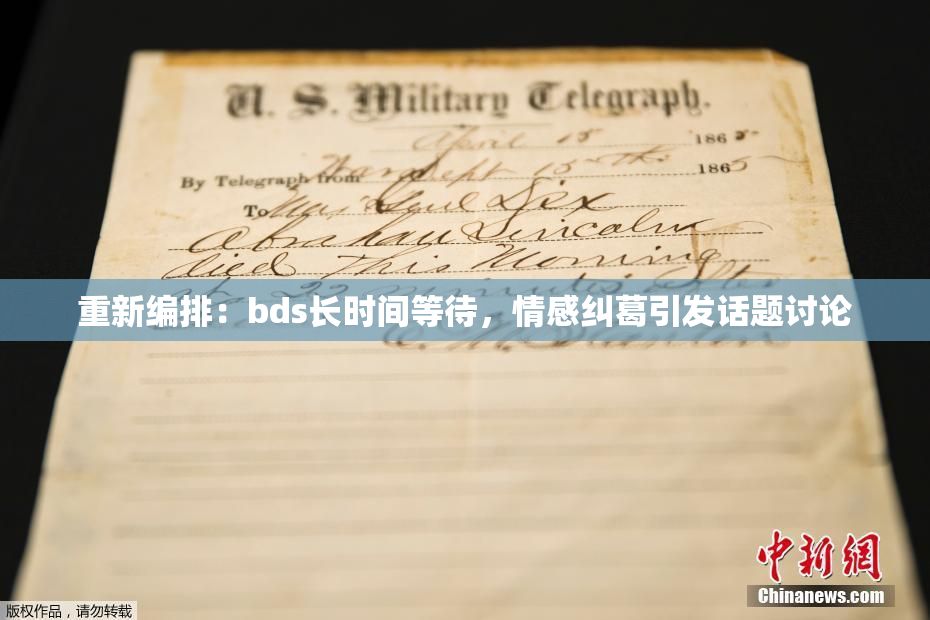 U. S. Military Telegraph.
April 15 1865
By Telegraph from War Dept 15th 1865
To Maj Genl Dix
Abraham Lincoln
died This Morning
at 22 minutes after
重新编排：bds长时间等待，情感纠葛引发话题讨论
E. M. Stanton
中新网
Chinanews.com
版权作品，请勿转载